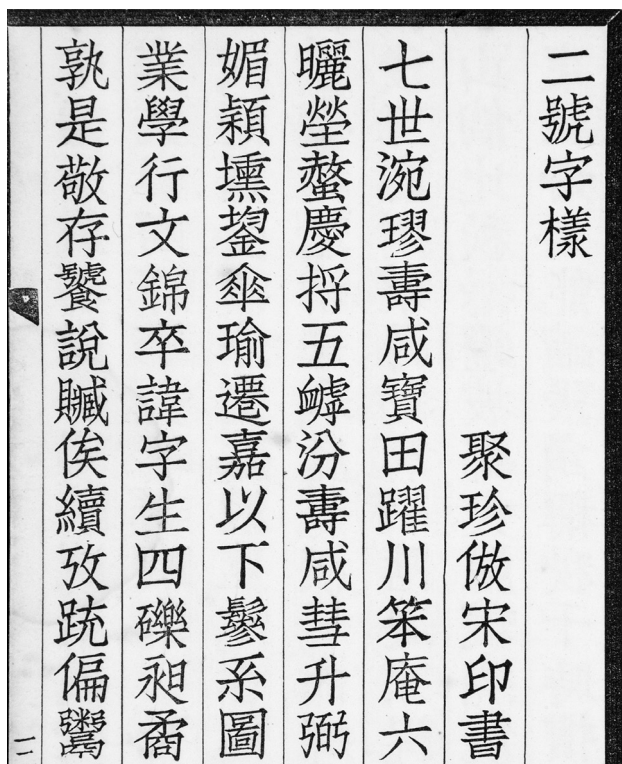 二號字樣
聚珍倣宋印書
七世涴璆壽咸寶田躍川笨庵六
曬塋螯慶捋五罅汾壽咸彗升弼
媚穎壎鋆傘瑜遷嘉以下鬖系圖
業學行文錦卒諱字生四礫昶矞
孰是敬存饕說贓俟續攷䟽偏鬻
二